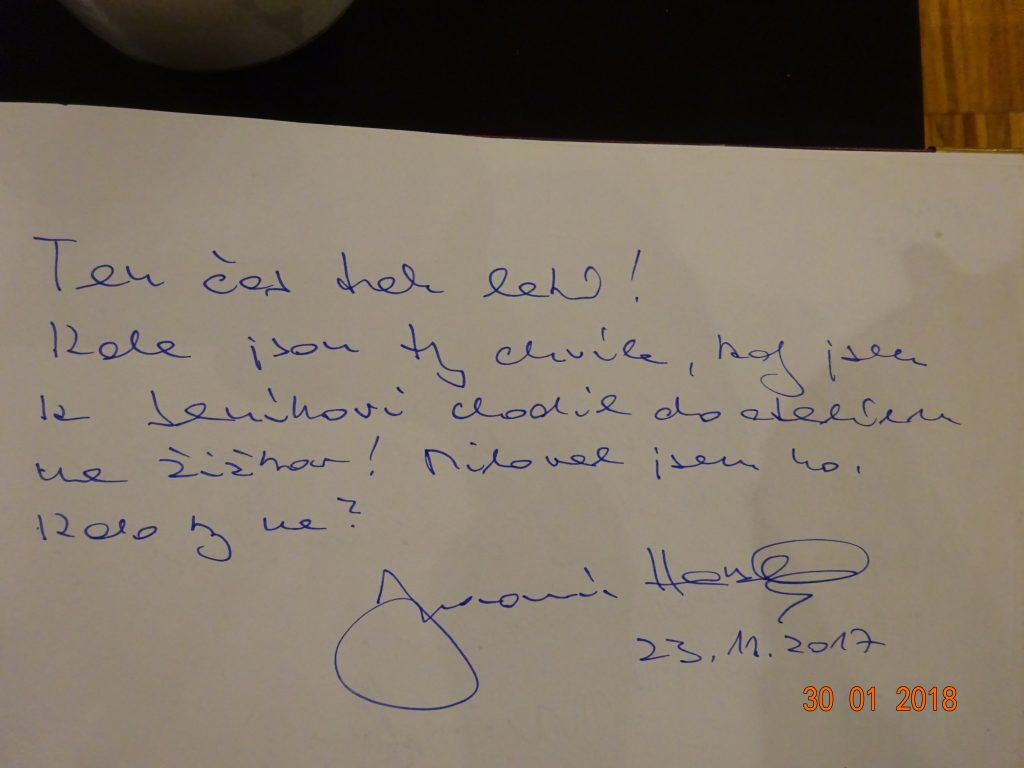 Ten čas tak letí!
Kde jsou ty chvíle, kdy jsem
k Jeníkovi chodil do atelieru
na Žižkov! Miloval jsem ho.
Kdo by ne?
Jaromír
23.11.2017
30 01 2018